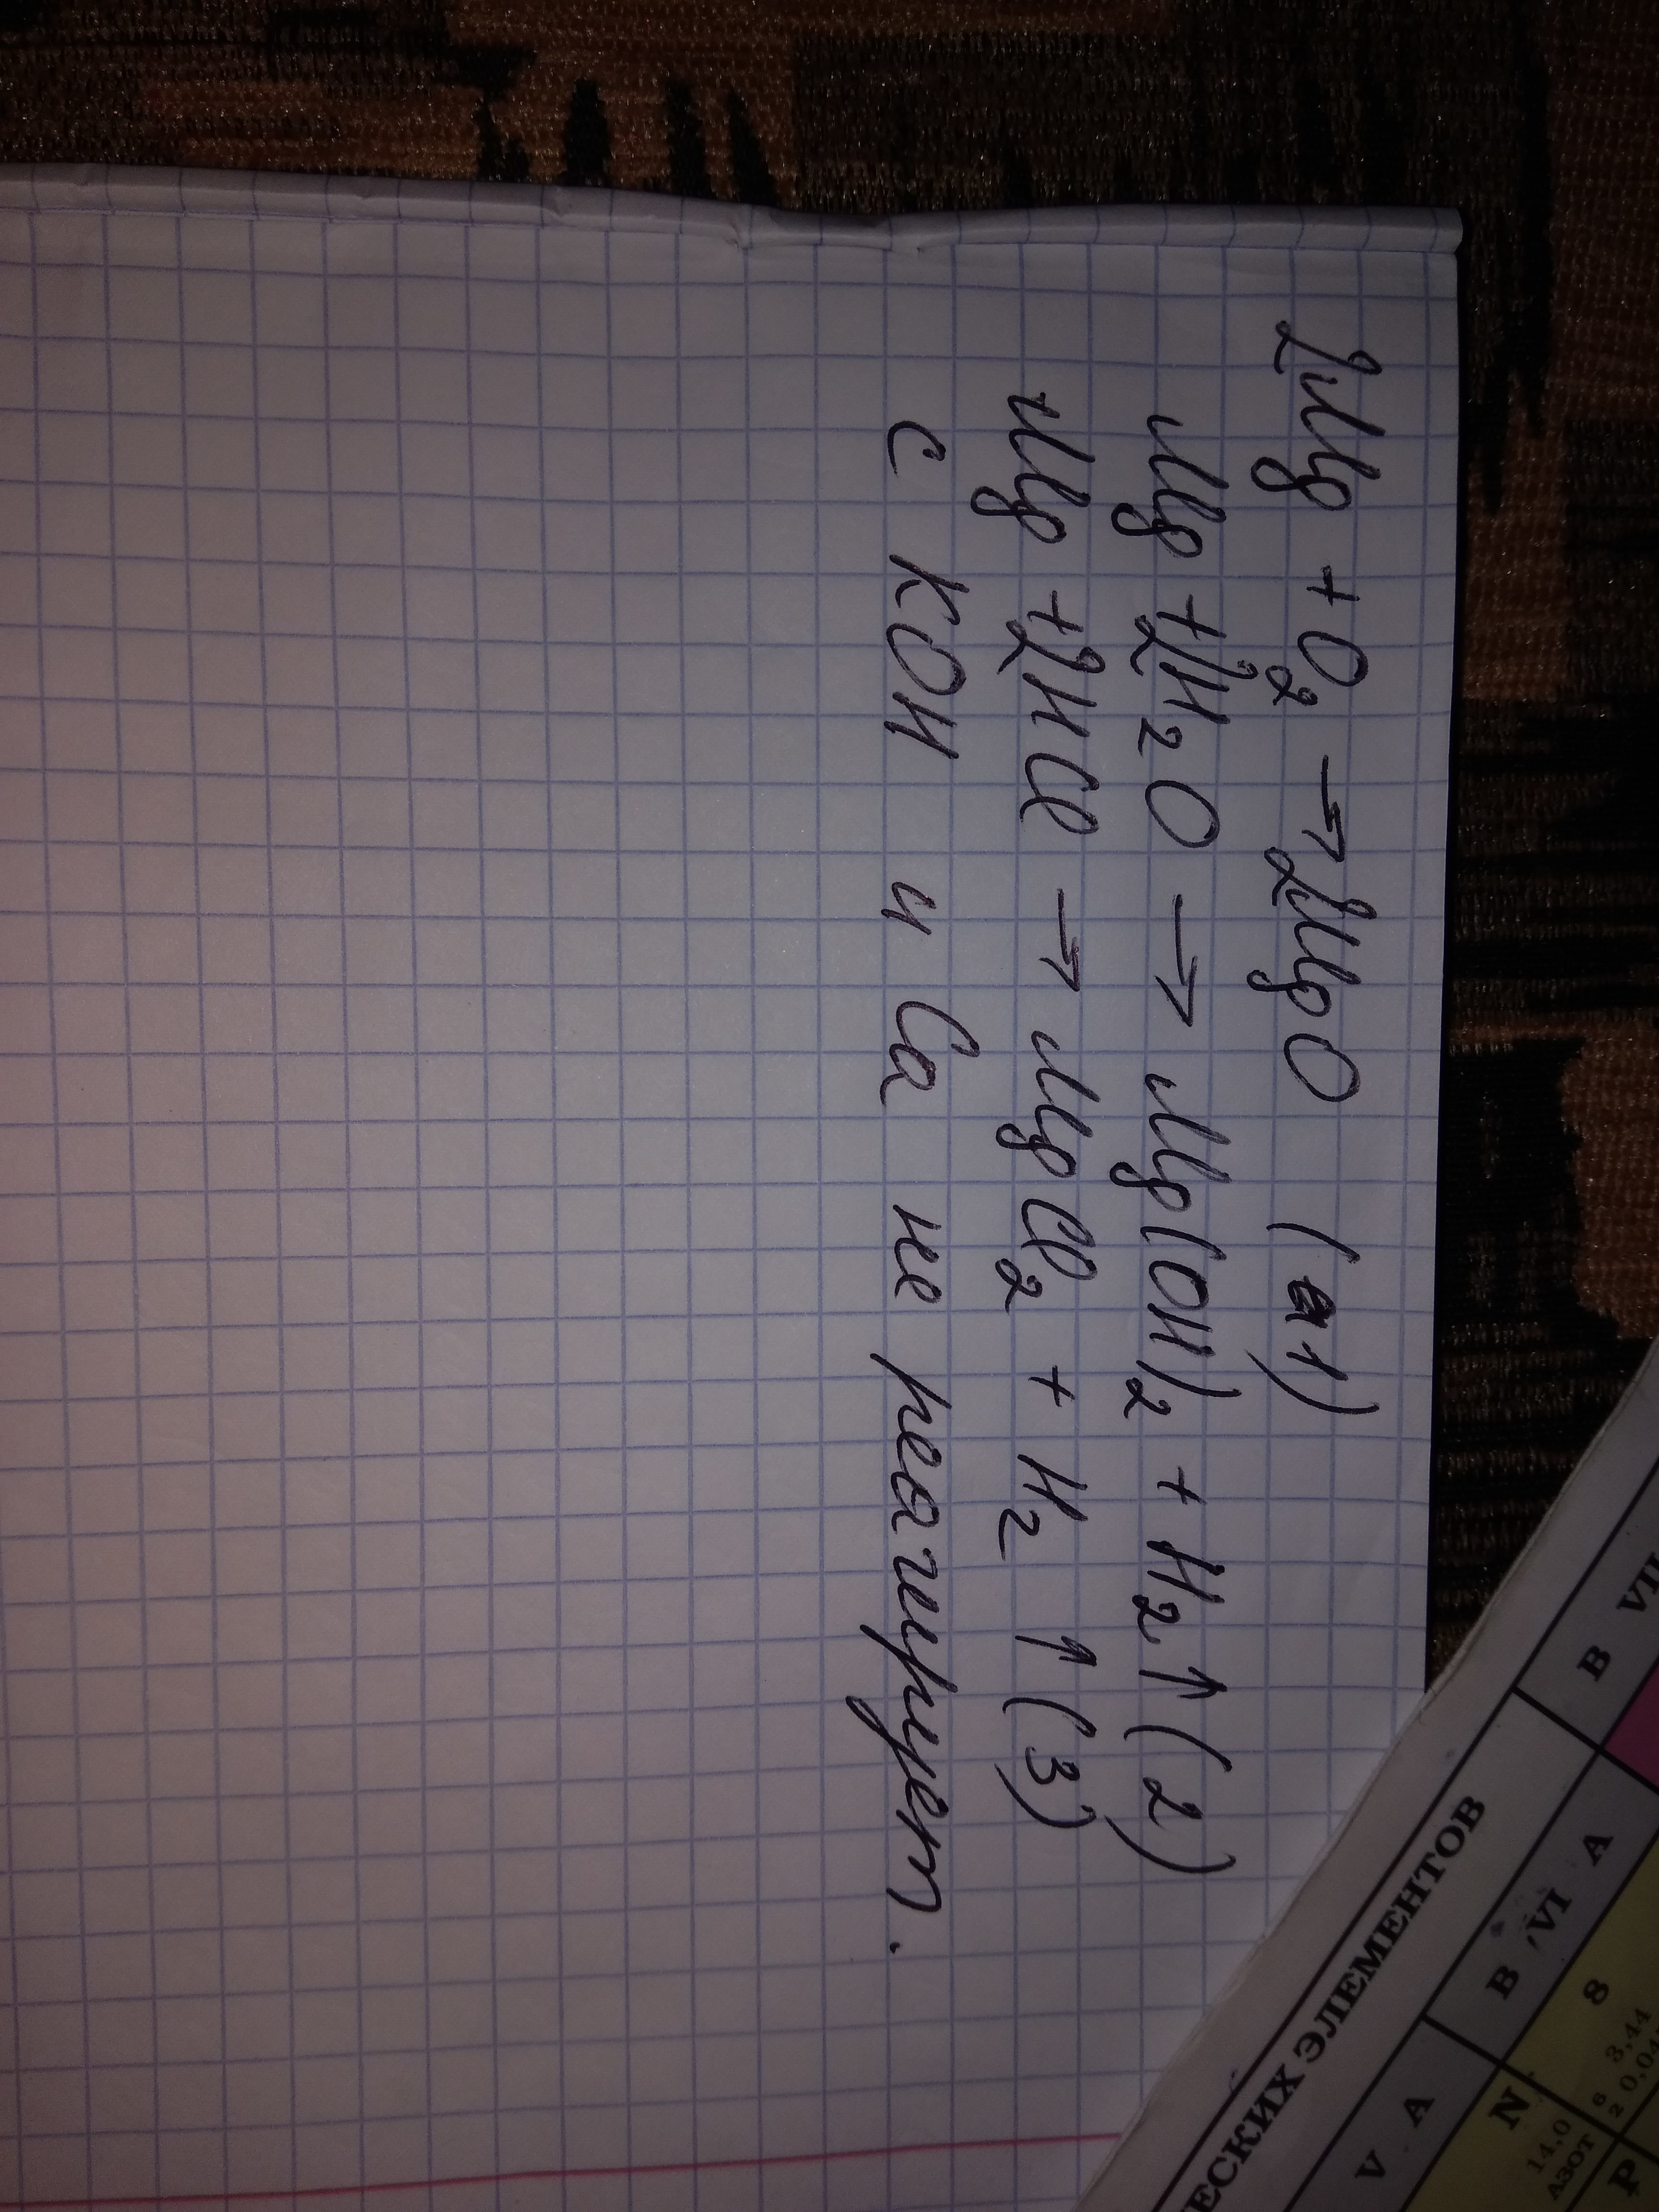 2Mg + O₂ → 2MgO (1)
Mg + 2H₂O → Mg(OH)₂ + H₂↑ (2)
Mg + 2HCl → MgCl₂ + H₂ ↑ (3)
с KOH и Ca не реагирует.
ЕСКИХ ЭЛЕМЕНТОВ
V
A
B VI A
B VII
N
14,0
АЗОТ
8
3,44
P